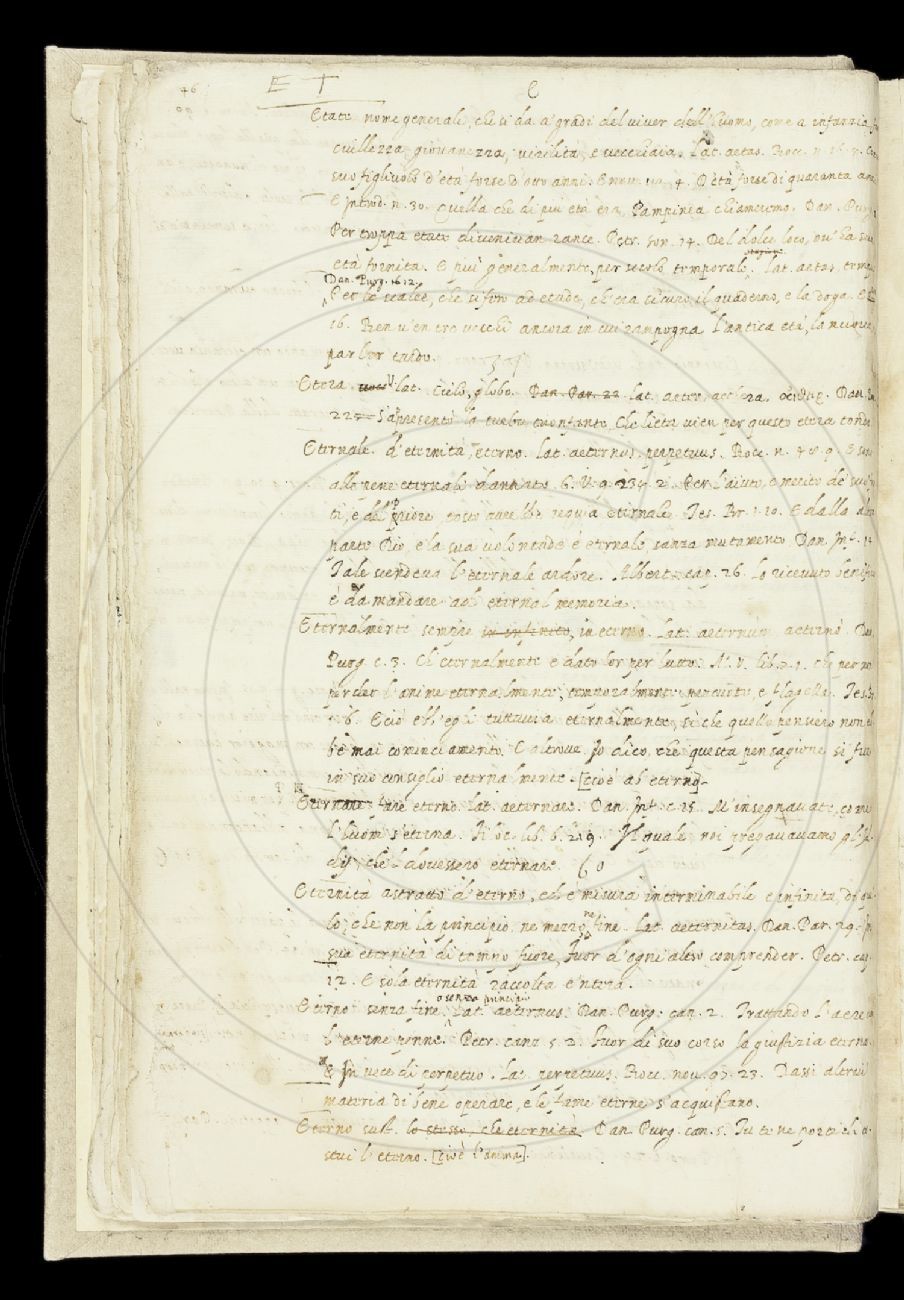 46
E T
E
Etate nome generale, che si da a gradi del viver dell'huomo, come a infanzia
ciullezza giovanezza, virilità, e vecchiaia. Lat. aetas. Bocc. n. 16.
suo figlivolo d'età forse d'otto anni. E nou. 4. D'età forse di quaranta an
E Introd. n. 30. Quella che di più età era, Pampinea chiameremo. Dan. Purg.
Per troppa etate divenivan rance. Petr. son. 14. Del dolce loco, ov' ha sua
età fornita. E più generalmente, per secolo temporale. Lat. aetas. temp
Dan. Purg. 12.
Per le scalee, che si fero ad etade, ch'era sicuro il quaderno, e la doga. E
16. Ben v'en tre vecchi ancora in cui rampogna l'antica età, la nuova,
par lor tardo.
Etera lat. Cielo, globo. Dan. Par. 22 lat. aeter, aethera. Dan.
22 s'apresentò la turba trionfante, Che lieta vien per questo etera tondo
Eternale. d'eternità, eterno. Lat. aeternus. perpetuus. Bocc. n.
alle pene eternali dannato. G. V. 9. 2. Per l'aiuto, e merito de' suoi
ti, e del priore, tosto avrebbe requia eternale. Tes. Br. 1. 10. E dalla alta
parte Dio, e la sua volontade è eternale, sanza mutamento Dan. Inf. 14
Tale scendeva l'eternale ardore. Albert. cap. 26. Lo ricevuto benificio
è da mandare ad eternal memoria.
Eternalmente sempre in infinito, in eterno. Lat. aeternum, aeterno. Dan.
Purg. c. 3. Ch'eternalmente è dato lor per lutto. M. V. lib. 2. 1. che per no
perder l'anime eternalmente, temporalmente percuote, e flagella. Tes. Br.
6. E ciò ebb'egli tuttavia eternalmente, sì che quello pensiero non eb
be mai cominciamento. E altrove. Io dico, che questa pensagione si fue
in suo consiglio eternalmente [cioè ab eterno].
Eternare. fare eterno. Lat. aeternare. Dan. Inf. c. 15. M'insegnavate, come
l'huom s'eterna. Filoc. lib. 6. 219. Il quale noi pregavavamo gl'Id
dij, che'l dovessero eternare. 60
Eternità astratto d'eterno, ed è misura interminabile e infinita, di que
lo, che non ha principio, ne mezzo, ne fine. Lat. aeternitas. Dan. Par. 29. In
sua eternità di tempo fuore, Fuor d'ogni altro comprender. Petr. cap
12. E sola eternità raccolta e 'ntera.
Eterno senza fine. o senza principio Lat. aeternus. Dan. Purg. can. 2. Trattando l'aere
l'eterne penne. Petr. canz. 5. 2. Fuor di suo corso la giustizia eterna.
& In vece di perpetuo. Lat. perpetuus. Bocc. nov. 97. 23. Dassi altrui
materia di bene operare, e le fame eterne s'acquistano.
Eterno sust. lo stesso, che eternità. Dan. Purg. can. 5. Tu te ne porti di co
stui l'eterno. [cioè l'anima].